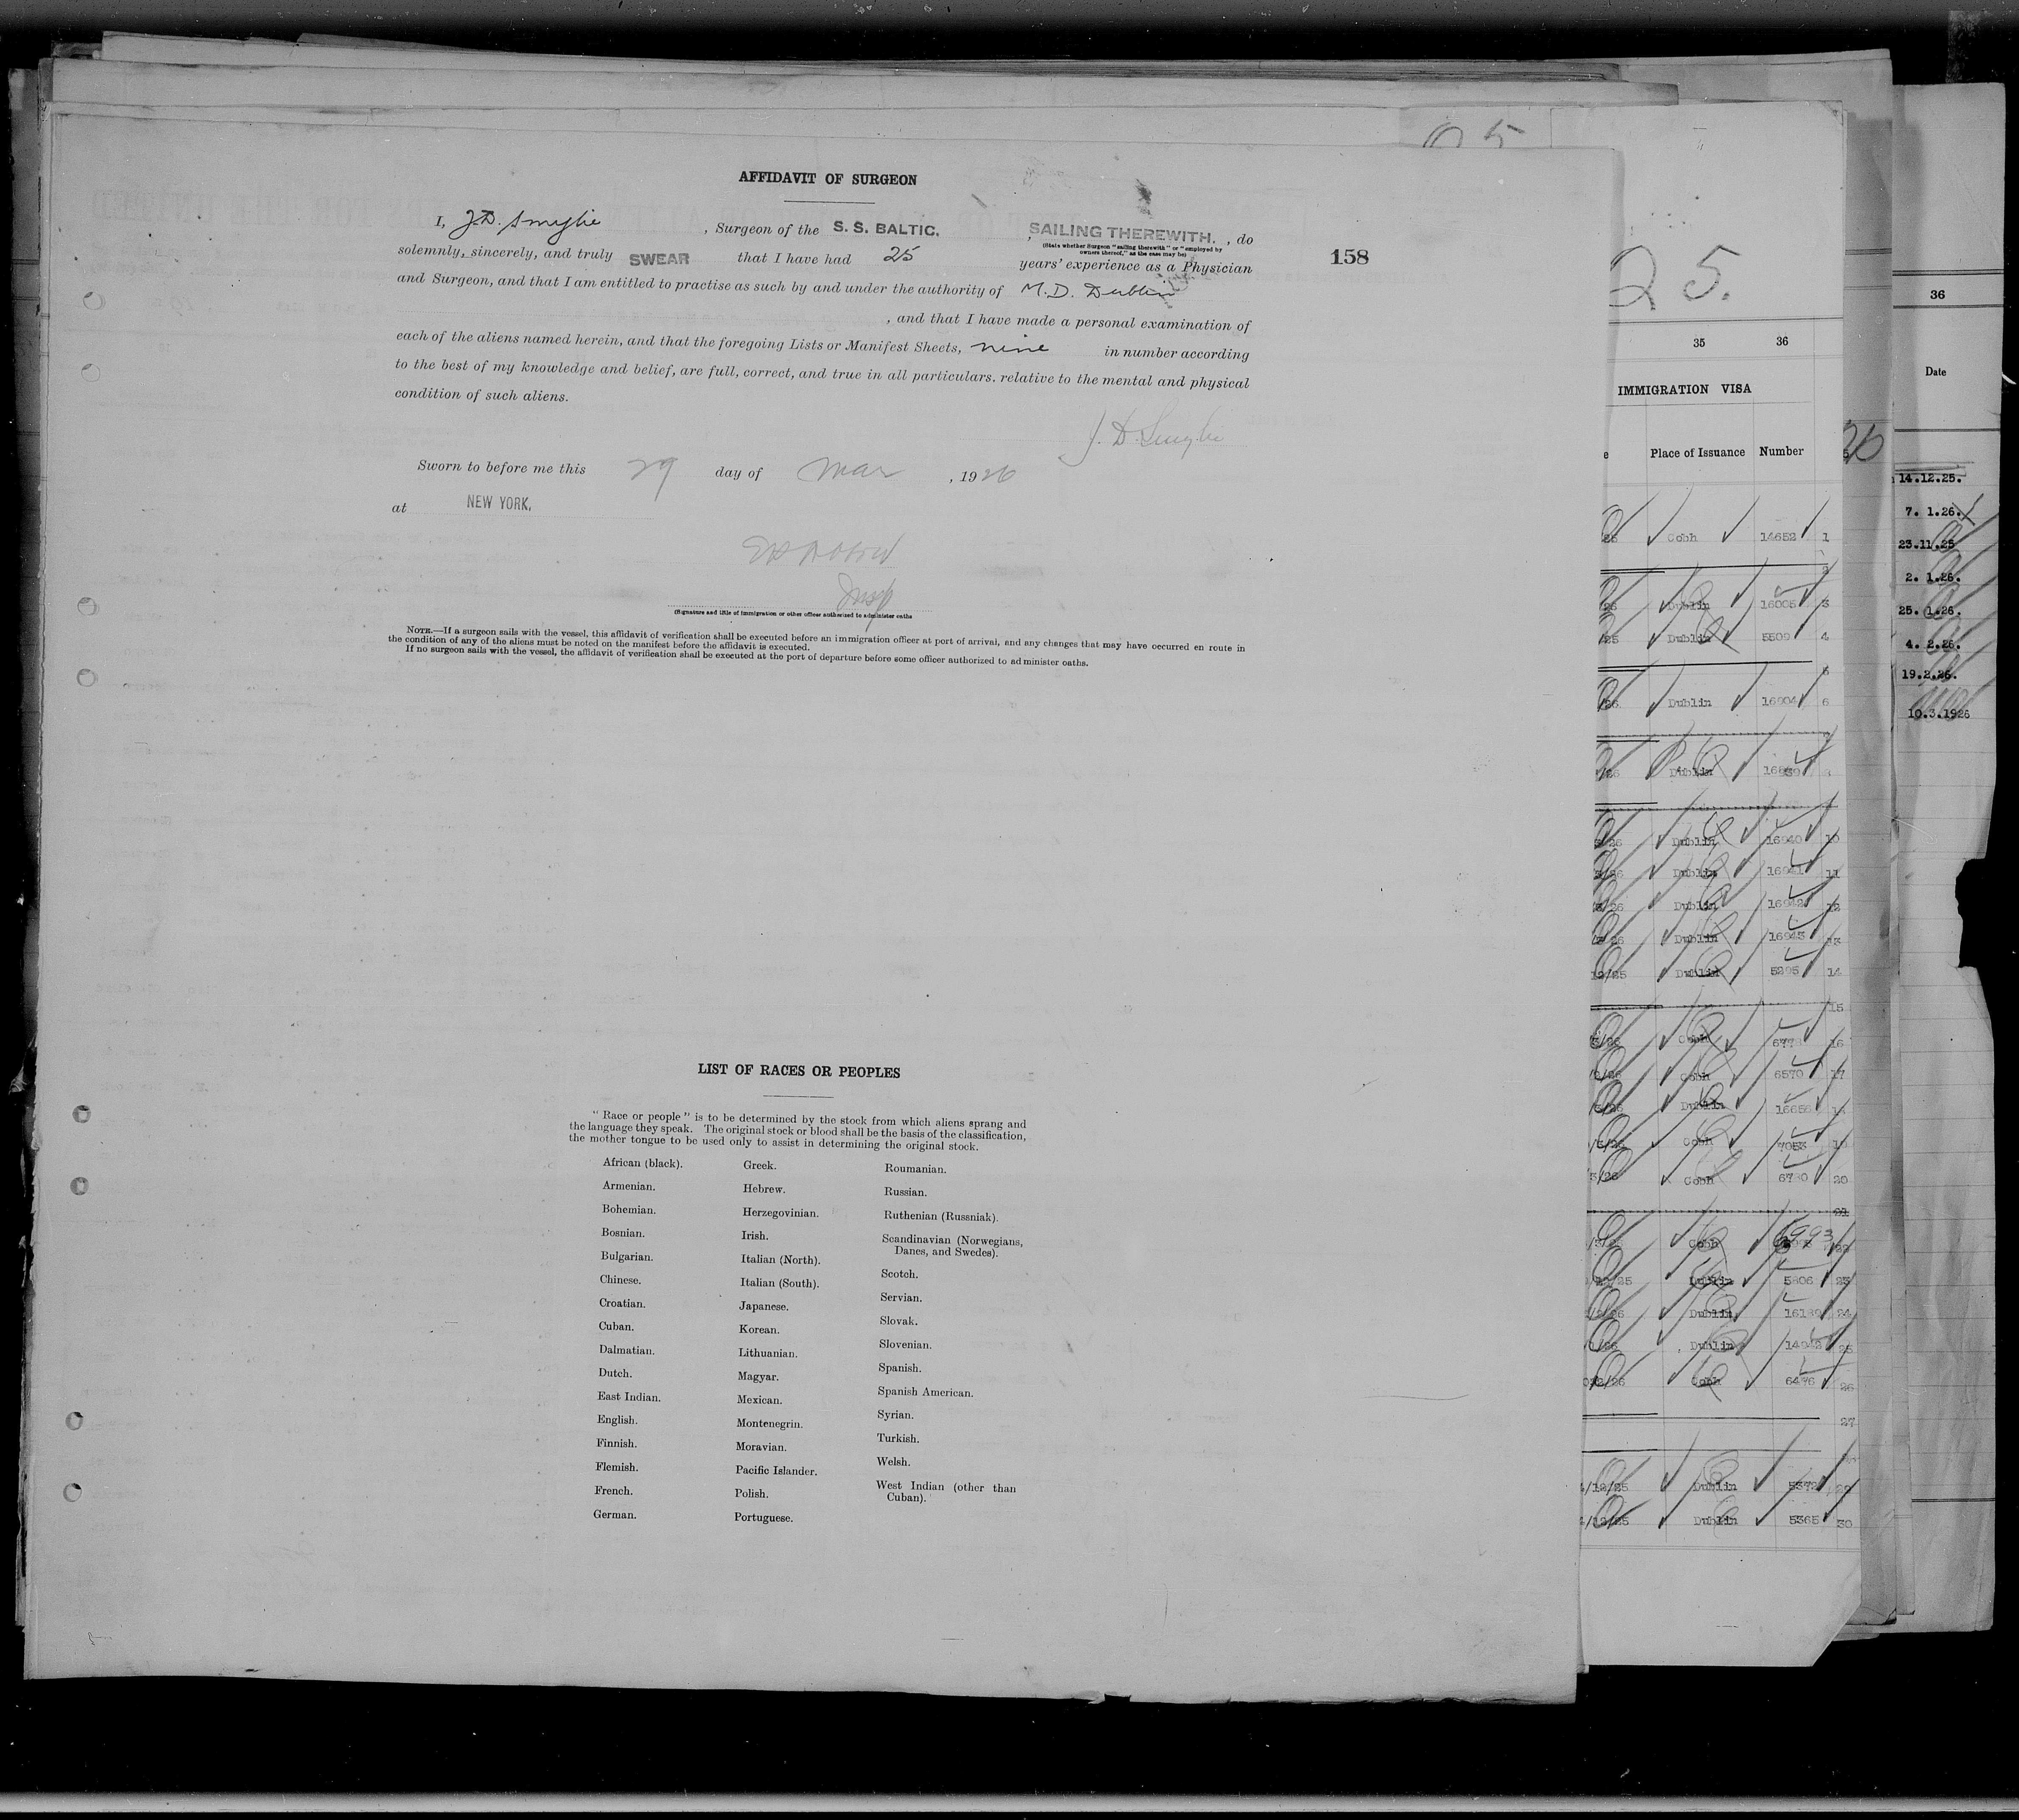 AFFIDAVIT OF SURGEON
I, J.D. Smylie, Surgeon of the S. S. BALTIC, SAILING THEREWITH. , do
(State whether Surgeon "sailing therewith" or "employed by
owners thereof," as the case may be)
solemnly, sincerely, and truly SWEAR that I have had 25 years' experience as a Physician
158
and Surgeon, and that I am entitled to practise as such by and under the authority of M.D. Dublin
, and that I have made a personal examination of
each of the aliens named herein, and that the foregoing Lists or Manifest Sheets, nine in number according
to the best of my knowledge and belief, are full, correct, and true in all particulars. relative to the mental and physical
condition of such aliens.
J. D. Smylie
Sworn to before me this 29 day of Mar , 1926
at NEW YORK.
Insp
(Signature and title of immigration or other officer authorized to administer oaths
NOTE.—If a surgeon sails with the vessel, this affidavit of verification shall be executed before an immigration officer at port of arrival, and any changes that may have occurred en route in
the condition of any of the aliens must be noted on the manifest before the affidavit is executed.
If no surgeon sails with the vessel, the affidavit of verification shall be executed at the port of departure before some officer authorized to administer oaths.
LIST OF RACES OR PEOPLES
"Race or people" is to be determined by the stock from which aliens sprang and
the language they speak. The original stock or blood shall be the basis of the classification,
the mother tongue to be used only to assist in determining the original stock.
African (black).
Armenian.
Bohemian.
Bosnian.
Bulgarian.
Chinese.
Croatian.
Cuban.
Dalmatian.
Dutch.
East Indian.
English.
Finnish.
Flemish.
French.
German.
Greek.
Hebrew.
Herzegovinian.
Irish.
Italian (North).
Italian (South).
Japanese.
Korean.
Lithuanian.
Magyar.
Mexican.
Montenegrin.
Moravian.
Pacific Islander.
Polish.
Portuguese.
Roumanian.
Russian.
Ruthenian (Russniak).
Scandinavian (Norwegians,
Danes, and Swedes).
Scotch.
Servian.
Slovak.
Slovenian.
Spanish.
Spanish American.
Syrian.
Turkish.
Welsh.
West Indian (other than
Cuban).
25.
35 36
IMMIGRATION VISA
Place of Issuance Number
Cobh 14652 1
Dublin 16005 3
Dublin 5509 4
5
Dublin 16904 6
Dublin
Dublin 16940 10
Dublin 16941 11
Dublin 16942 12
Dublin 16943 13
12/25 Dublin 5295 14
15
Cobh 16
Cobh 6570 17
Dublin 16656
Cobh 7053 19
Cobh 6780 20
21
Cobh 6993 22
Dublin 5806 23
Dublin 16189 24
Dublin 25
Cobh 6476 26
27
/12/25 Dublin 5372 29
/12/25 Dublin 5365 30
36
Date
14.12.25.
7. 1.26.
23.11.25
2. 1.26.
25. 1.26.
4. 2.26.
19.2.26.
10.3.1926